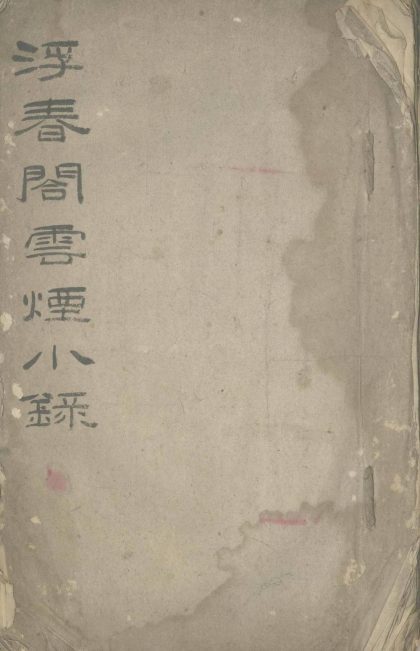 浮春閣雲煙小錄